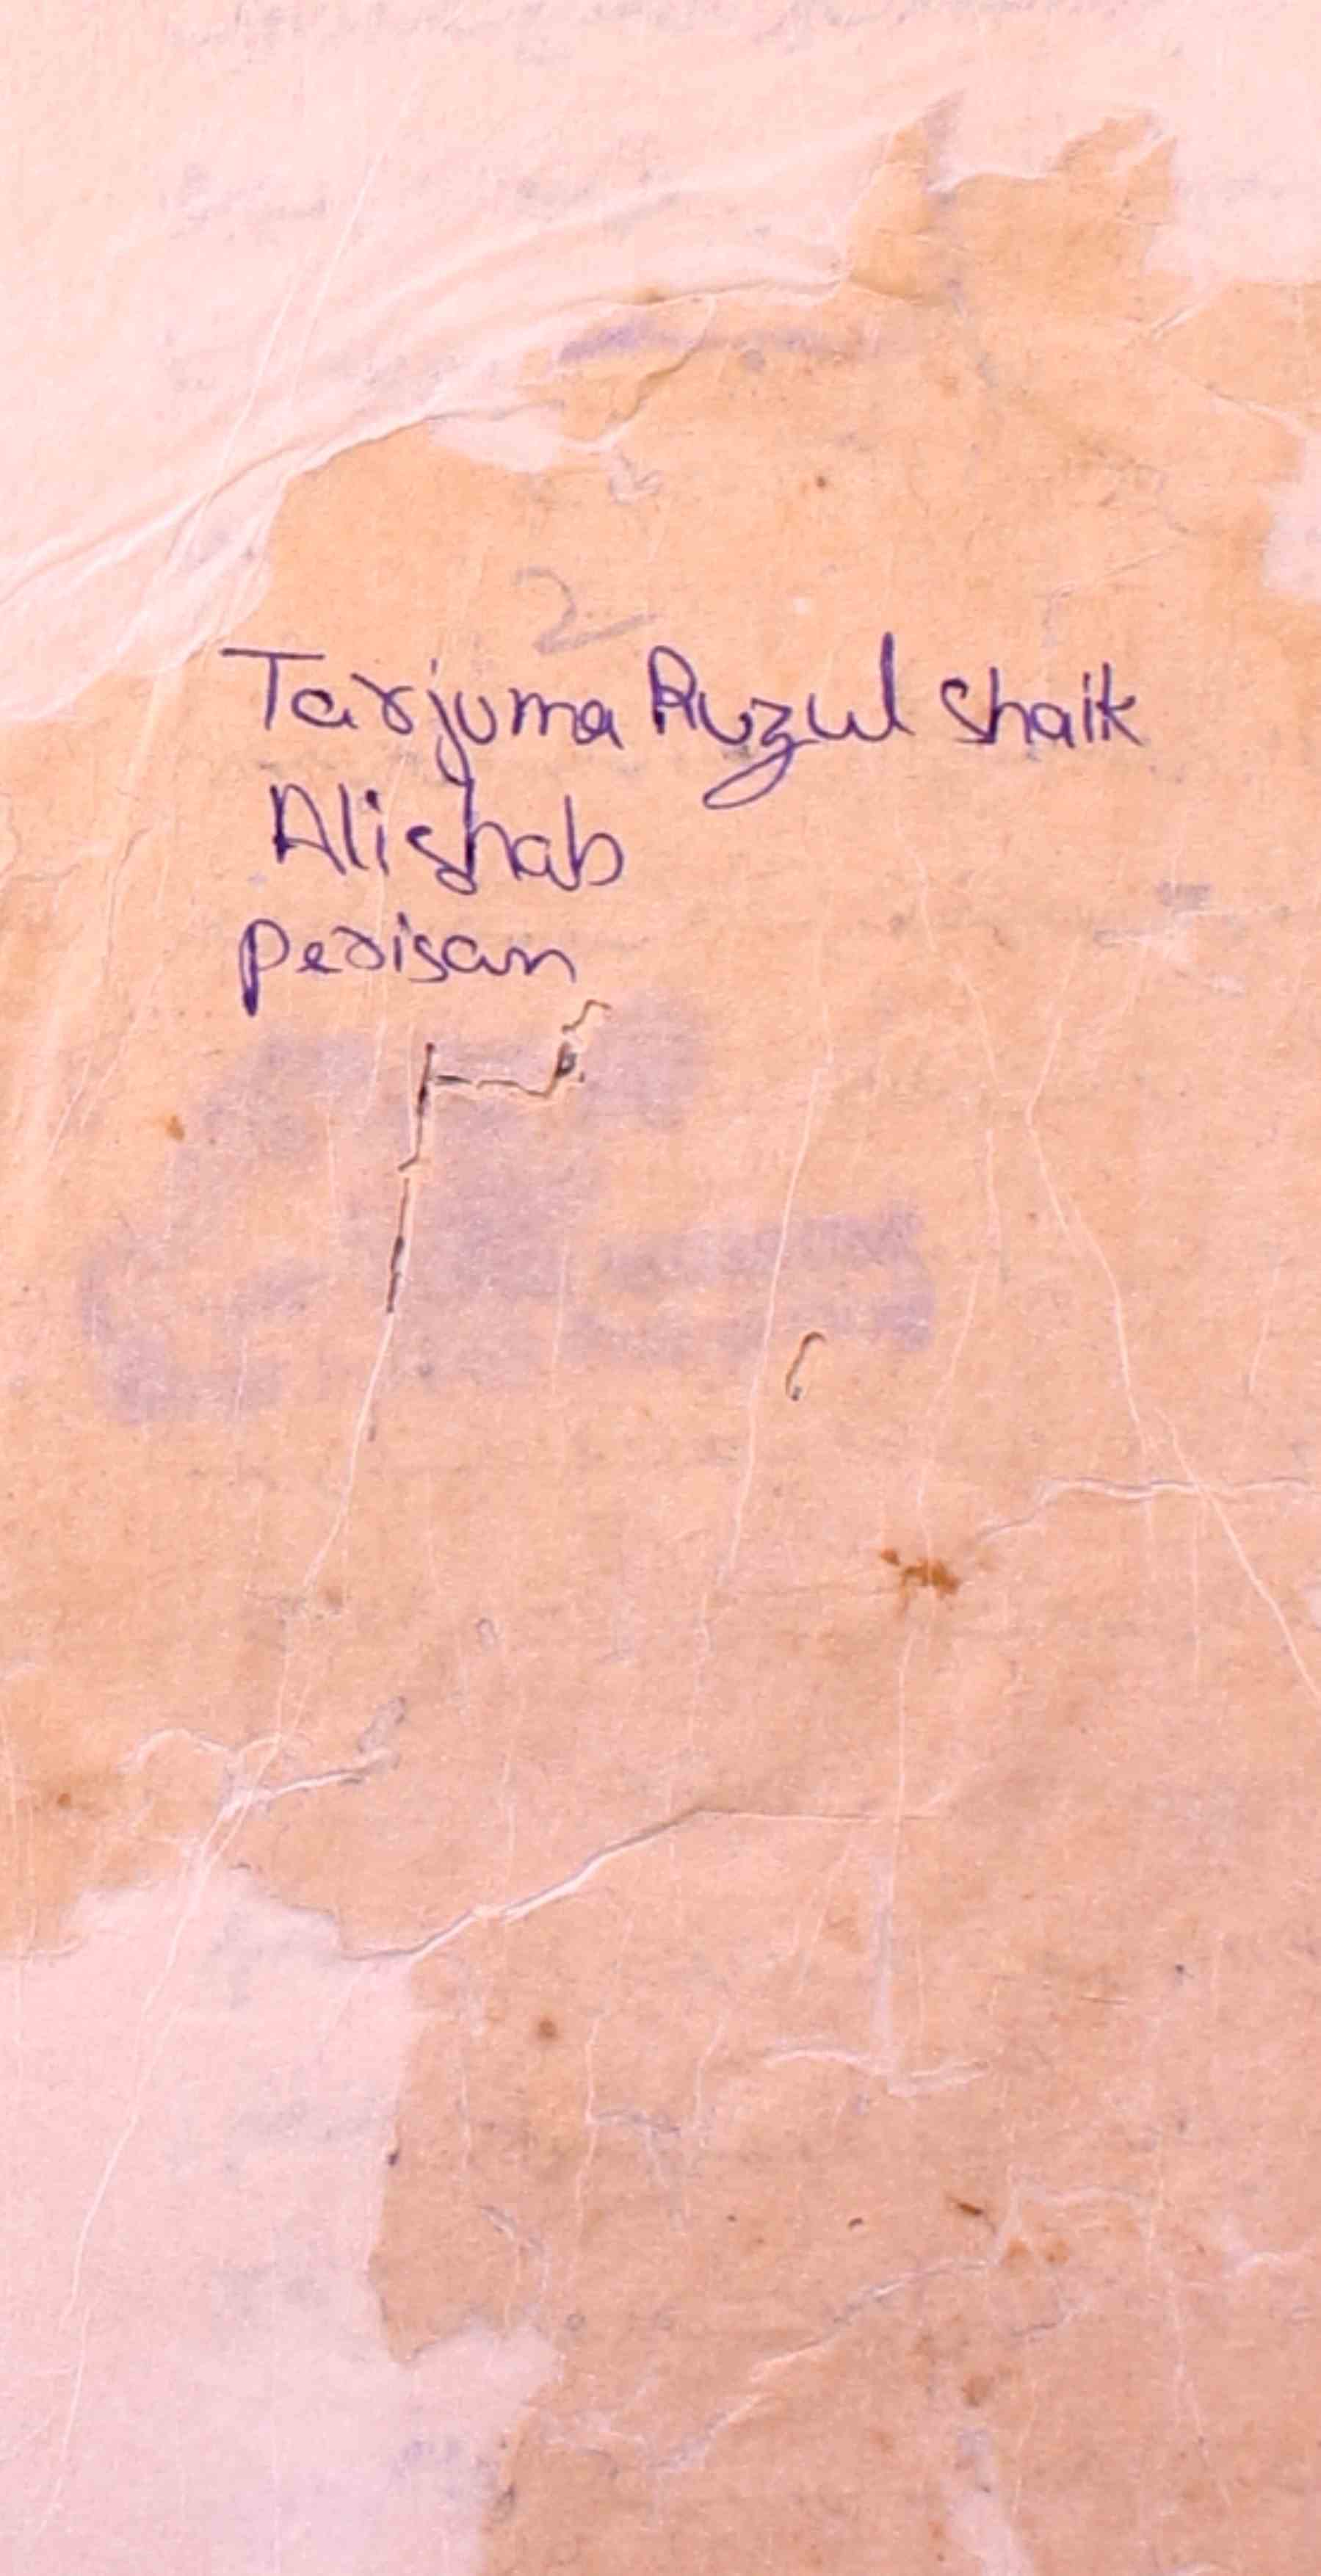 2
Tarjuma Ruzul Shaik
Alishab
Perisan